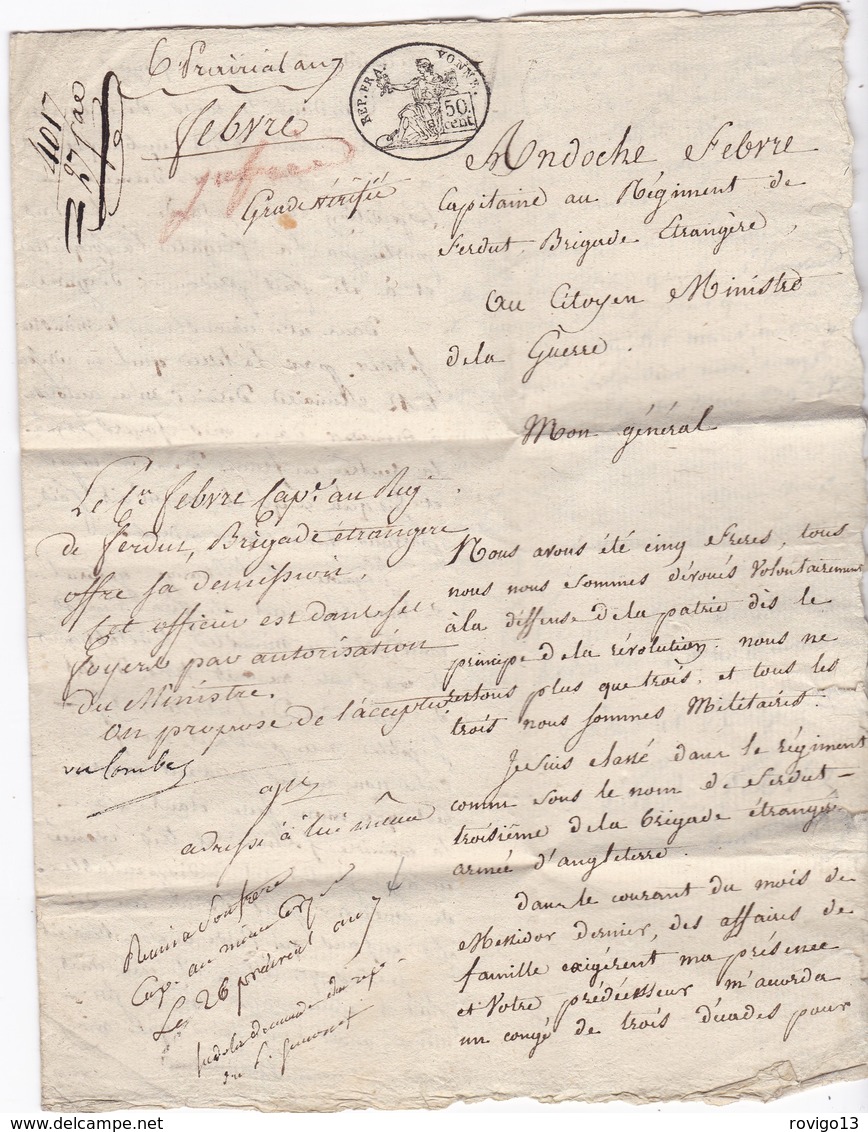 6 Prairial an 7
4017
febvre
Grade vérifié
REP. FRA. YONNE.
50 cent
Andoche Febvre
Capitaine au Régiment de
Ferdut, Brigade Etrangère,
Au Citoyen Ministre
de la Guerre.
Mon général
Le Cn. febvre Capne. au Reg.
de ferdut, Brigade étrangere
offre sa demission.
Cet officier est dans ses
foyers par autorisation
du Ministre.
On propose de l'accepter
adressé à lui même
Remis a Son frere
Cap. au même Corps
Le 26 prairial an 7
Nous avons été cinq freres, tous
nous nous sommes dévoués Volontairement
à la deffense de la patrie dès le
principe de la révolution. nous ne
restons plus que trois. et tous les
trois nous sommes Militaires.
Je suis classé dans le régiment
connu sous le nom de Ferdut
troisième de la brigade étrangère
armée d'angleterre.
dans le courant du mois de
Messidor dernier, des affaires de
famille exigèrent ma présence
et Votre prédécesseur m'accorda
un congé de trois décades pour
rovigo13